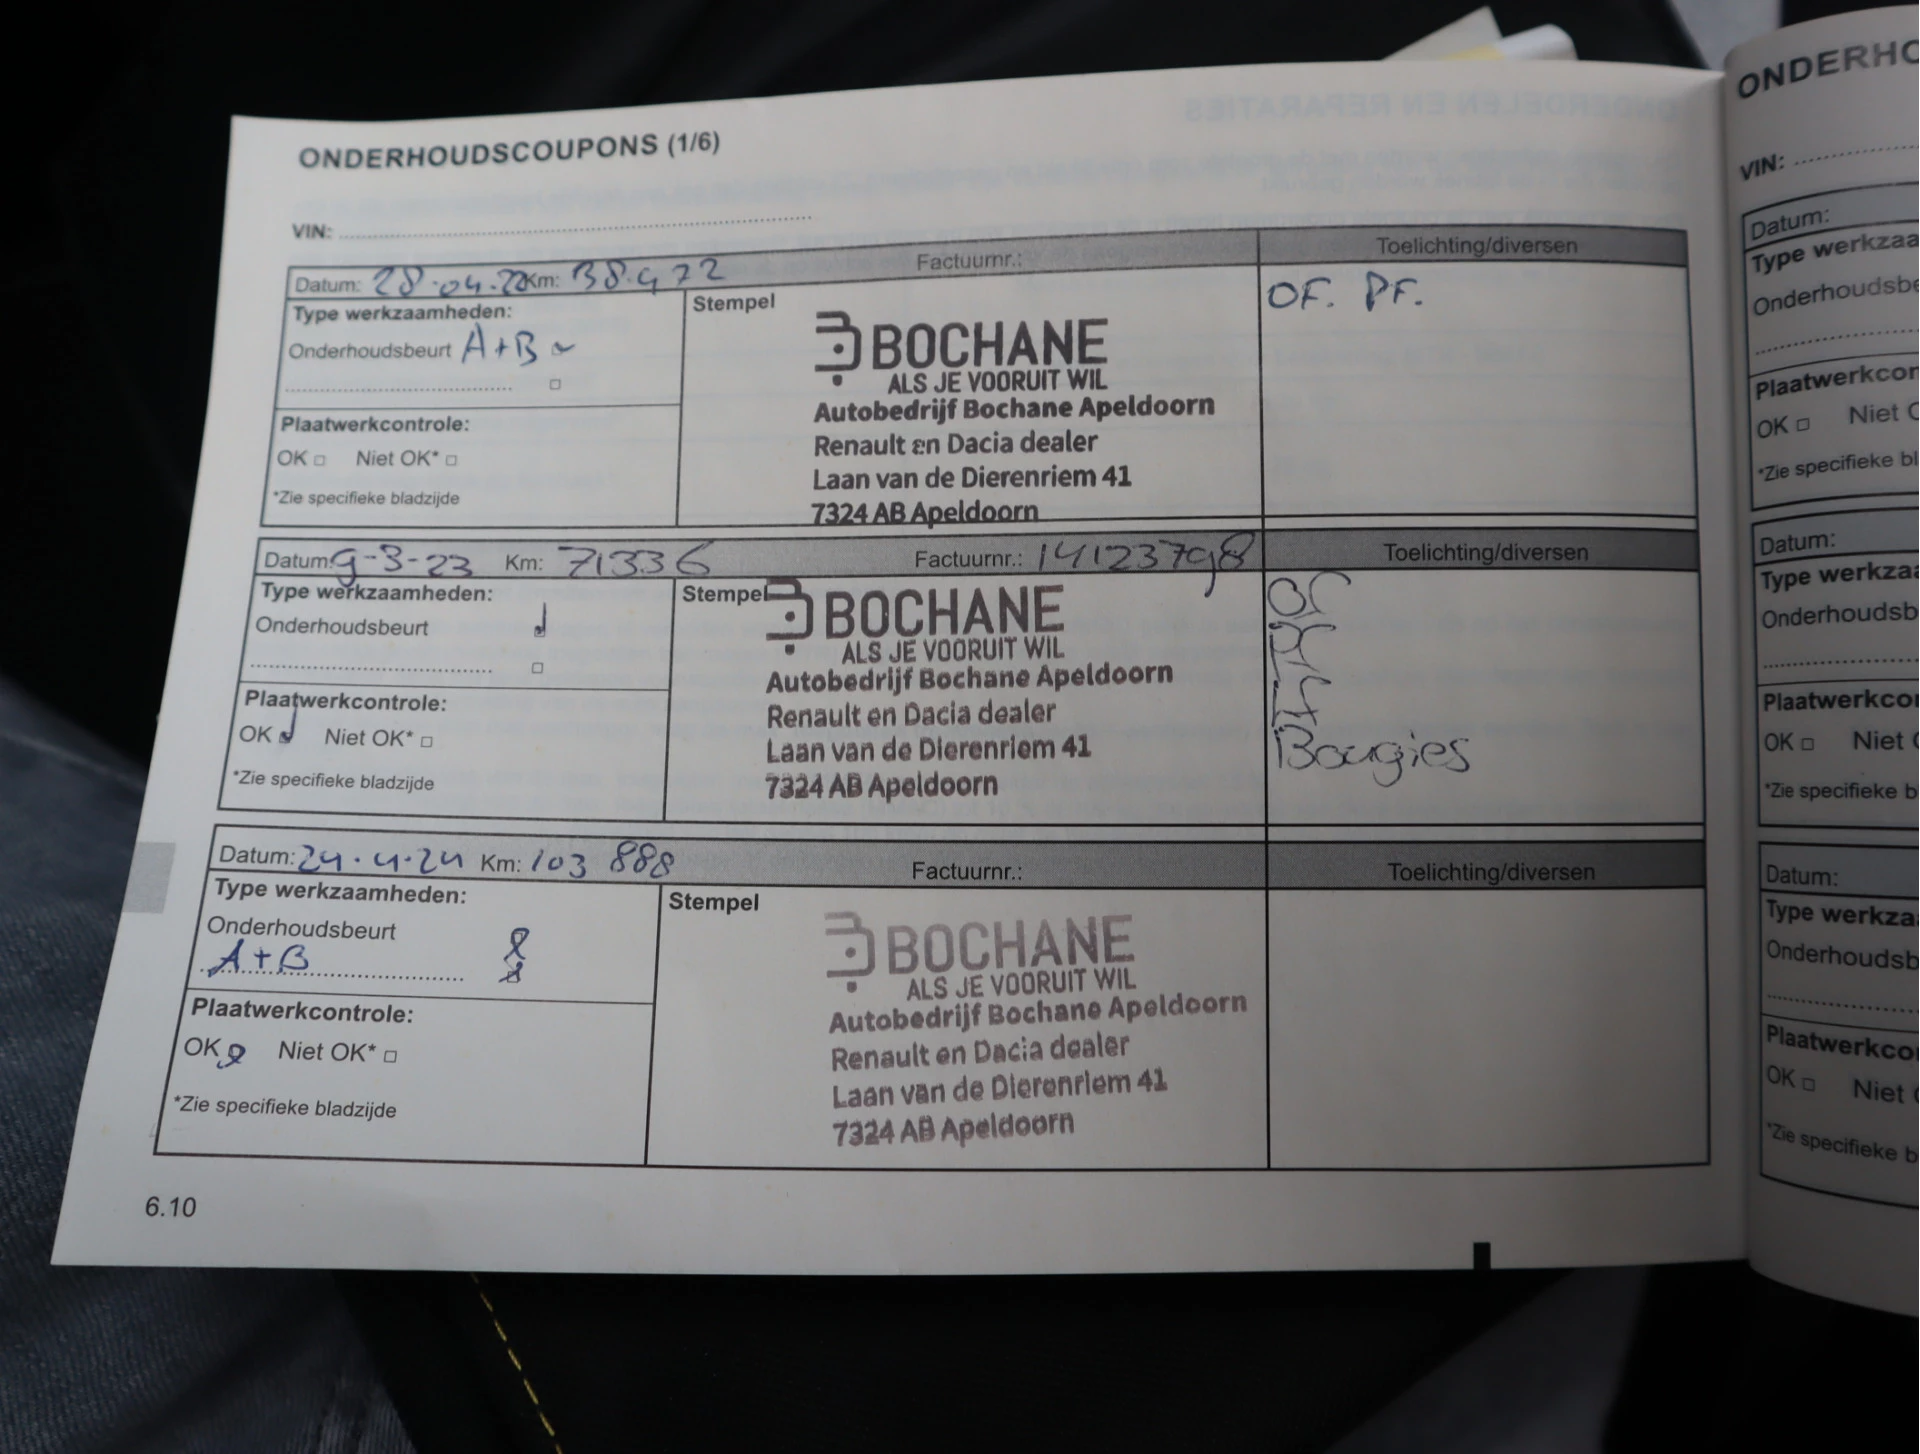 ONDERDELEN EN REPARATIES
ONDERHOUDSCOUPONS (1/6)
VIN:
Datum: 28-04-22 Km: 38.472 Factuurnr.: Toelichting/diversen
Type werkzaamheden: Stempel OF. PF.
Onderhoudsbeurt A+B
BOCHANE
ALS JE VOORUIT WIL
Autobedrijf Bochane Apeldoorn
Plaatwerkcontrole: Renault en Dacia dealer
OK Niet OK* Laan van de Dierenriem 41
*Zie specifieke bladzijde 7324 AB Apeldoorn
Datum: 9-3-23 Km: 71336 Factuurnr.: 14123798 Toelichting/diversen
Type werkzaamheden: Stempel OF
Onderhoudsbeurt BOCHANE
ALS JE VOORUIT WIL
Autobedrijf Bochane Apeldoorn
Plaatwerkcontrole: Renault en Dacia dealer
OK Niet OK* Laan van de Dierenriem 41 Bougies
*Zie specifieke bladzijde 7324 AB Apeldoorn
Datum: 24.4.24 Km: 103 888 Factuurnr.: Toelichting/diversen
Type werkzaamheden: Stempel
Onderhoudsbeurt BOCHANE
A+B ALS JE VOORUIT WIL
Autobedrijf Bochane Apeldoorn
Plaatwerkcontrole: Renault en Dacia dealer
OK Niet OK* Laan van de Dierenriem 41
*Zie specifieke bladzijde 7324 AB Apeldoorn
6.10
ONDERHO
VIN:
Datum:
Type werkzaa
Onderhoudsbe
Plaatwerkcon
OK Niet O
*Zie specifieke bl
Datum:
Type werkzaa
Onderhoudsb
Plaatwerkcon
OK Niet O
*Zie specifieke b
Datum:
Type werkza
Onderhoudsb
Plaatwerkco
OK Niet
*Zie specifieke b